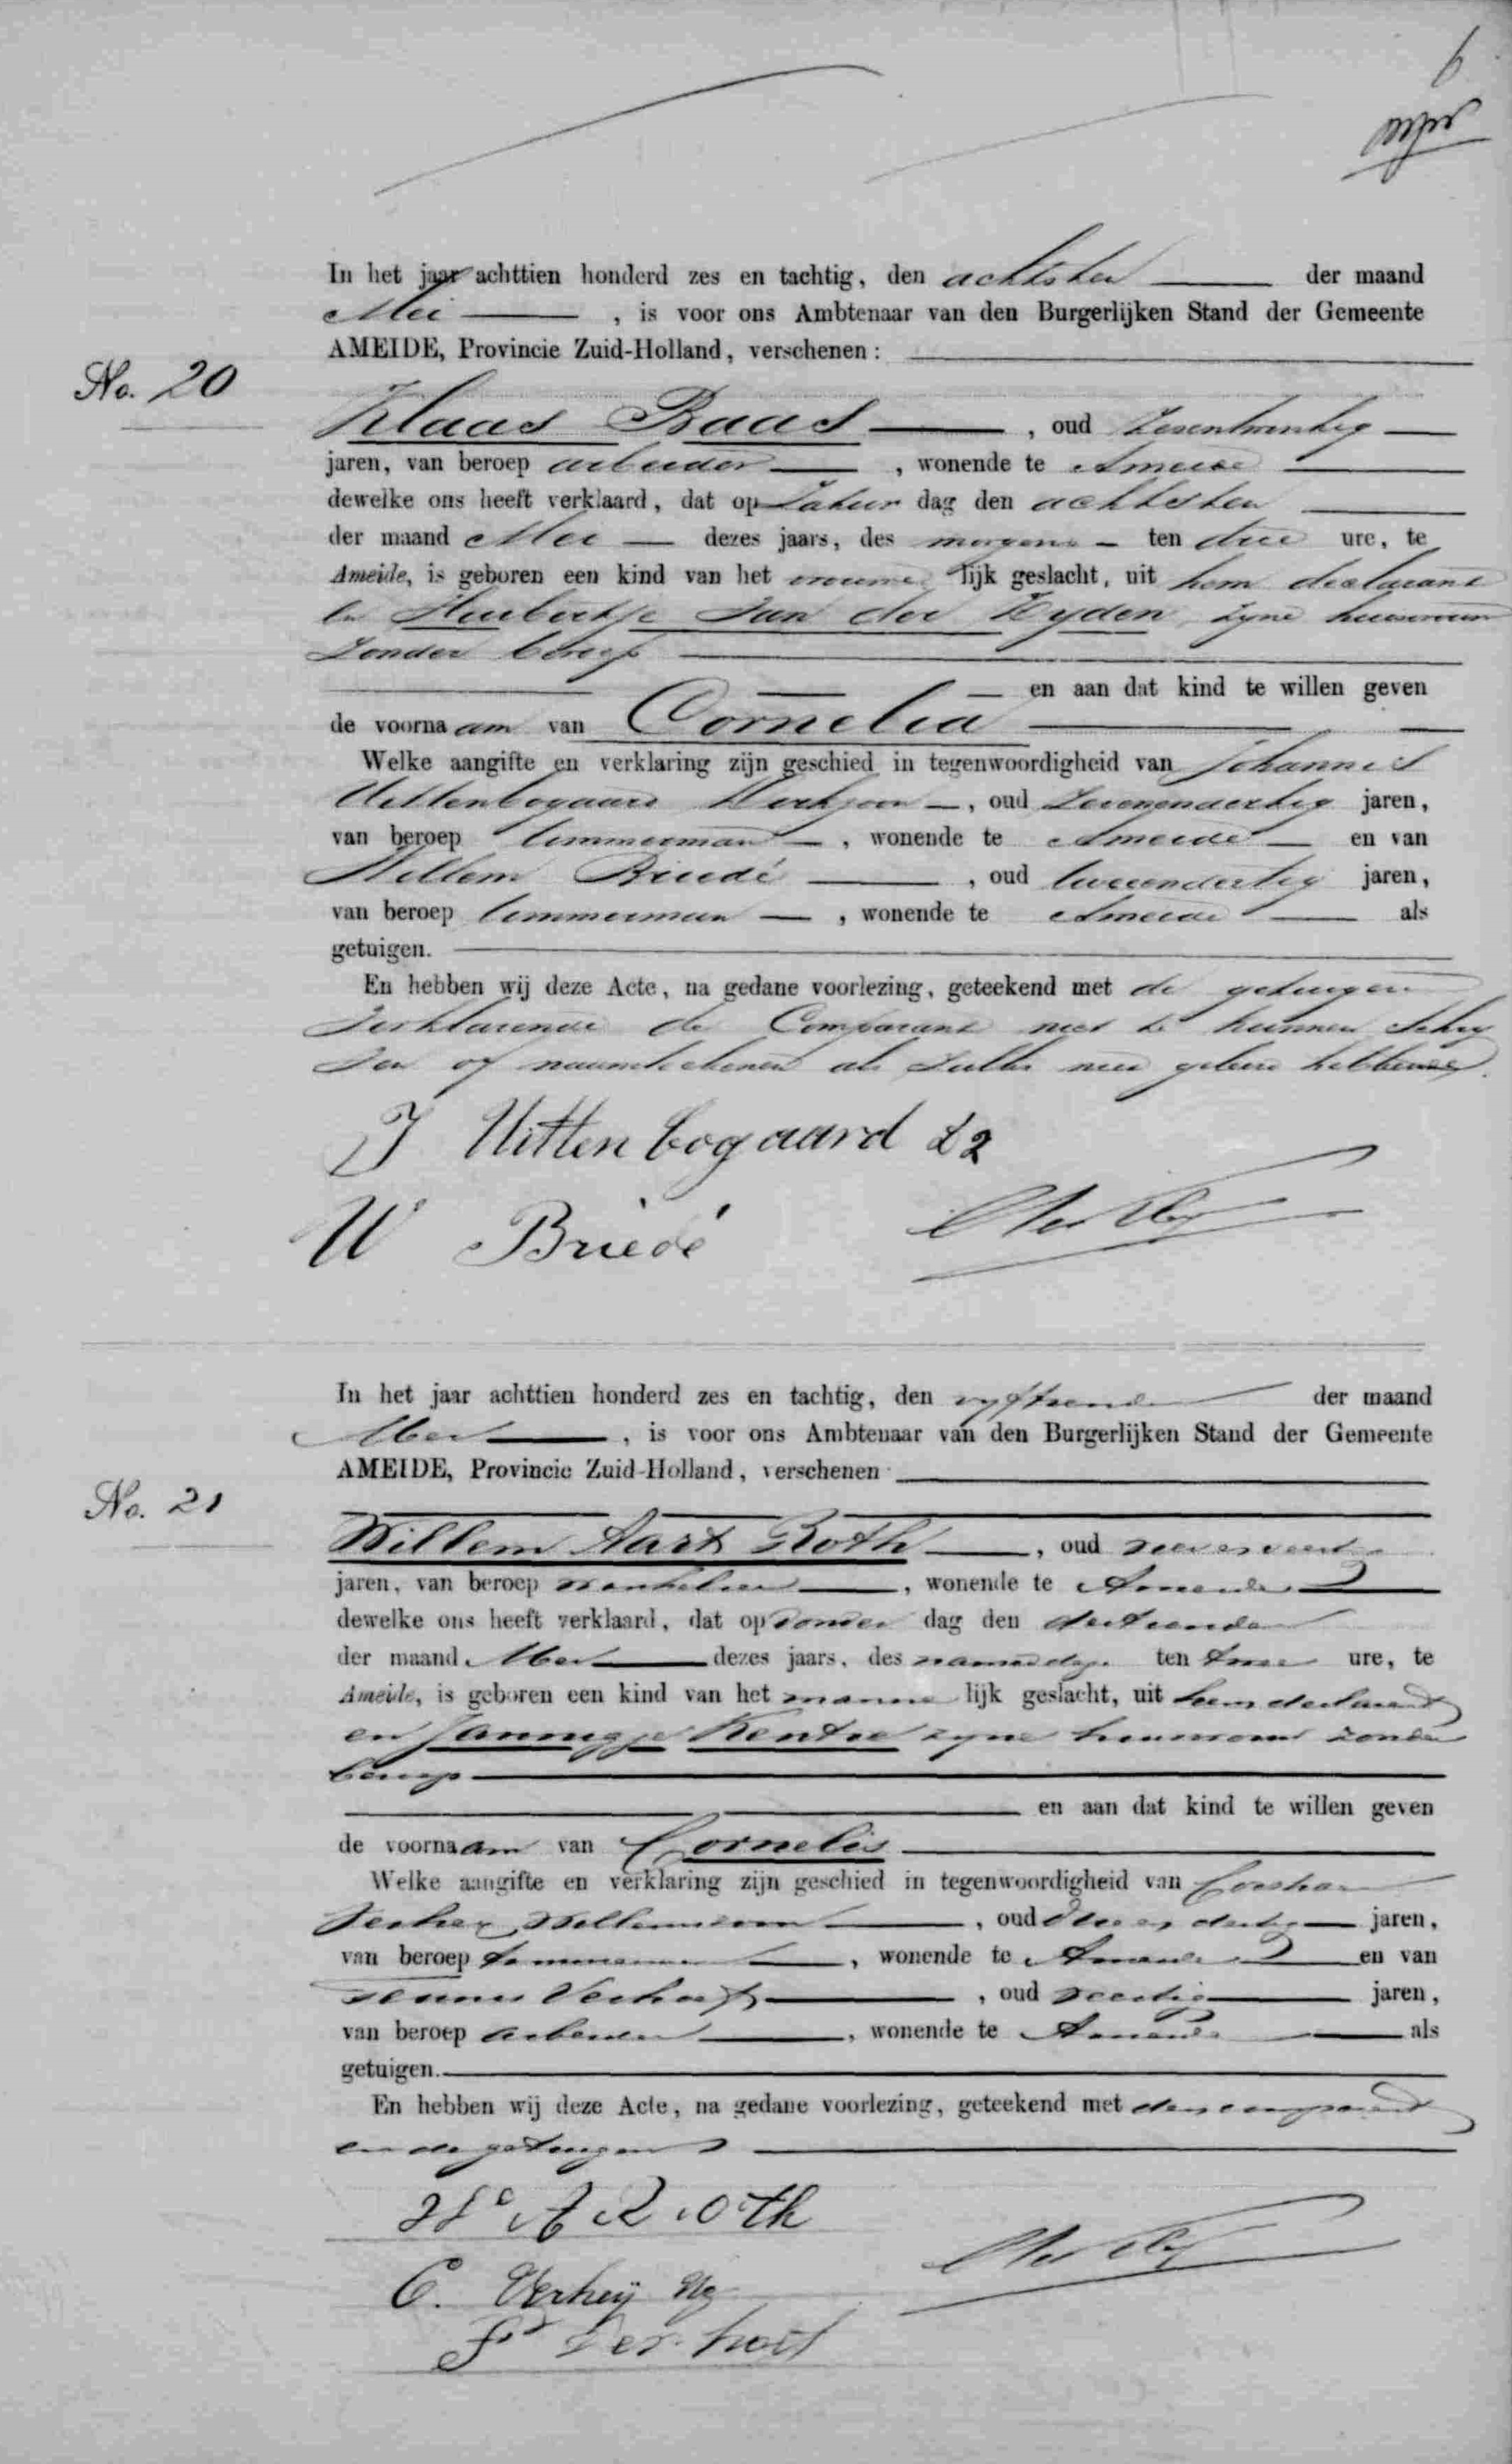 6
In het jaar achttien honderd zes en tachtig, den achtsten der maand
Mei, is voor ons Ambtenaar van den Burgerlijken Stand der Gemeente
AMEIDE, Provincie Zuid-Holland, verschenen:
No. 20
Klaas Baas, oud zesentwintig
jaren, van beroep arbeider, wonende te Ameide
dewelke ons heeft verklaard, dat op Zatur dag den achtsten
der maand Mei dezes jaars, des morgens ten drie ure, te
Ameide, is geboren een kind van het vrouwe lijk geslacht, uit hem declarant
en Huibertje van der Zyden, zyne huisvrouw
zonder beroep
en aan dat kind te willen geven
de voornaam van Cornelia
Welke aangifte en verklaring zijn geschied in tegenwoordigheid van Johannes
Uittenbogaard Dirkzoon, oud zevenendertig jaren,
van beroep timmerman, wonende te Ameide en van
Willem Briedé, oud tweeendertig jaren,
van beroep timmerman, wonende te Ameide als
getuigen.
En hebben wij deze Acte, na gedane voorlezing, geteekend met de getuigen
verklarende de Comparant niet te kunnen schry
ven of naamteekenen als zulks niet geleerd hebbende.
J Uittenbogaard Dz
W Briedé
In het jaar achttien honderd zes en tachtig, den vyftienden der maand
Mei, is voor ons Ambtenaar van den Burgerlijken Stand der Gemeente
AMEIDE, Provincie Zuid-Holland, verschenen
No. 21
Willem Aart Roth, oud
jaren, van beroep winkelier, wonende te Ameide
dewelke ons heeft verklaard, dat op Donder dag den dertienden
der maand Mei dezes jaars, des namiddags ten twee ure, te
Ameide, is geboren een kind van het manne lijk geslacht, uit hem declarant
en Jannigje Kentie zyne huisvrouw zonder
beroep
en aan dat kind te willen geven
de voornaam van Cornelis
Welke aangifte en verklaring zijn geschied in tegenwoordigheid van Corstiaan
Verhey Willemszoon, oud drie en dertig jaren,
van beroep timmerman, wonende te Ameide en van
Teunis Verhoef, oud veertig jaren,
van beroep arbeider, wonende te Ameide als
getuigen.
En hebben wij deze Acte, na gedane voorlezing, geteekend met den comparant
en de getuigen
W A Roth
C. Verheij Wz
T Verhoef